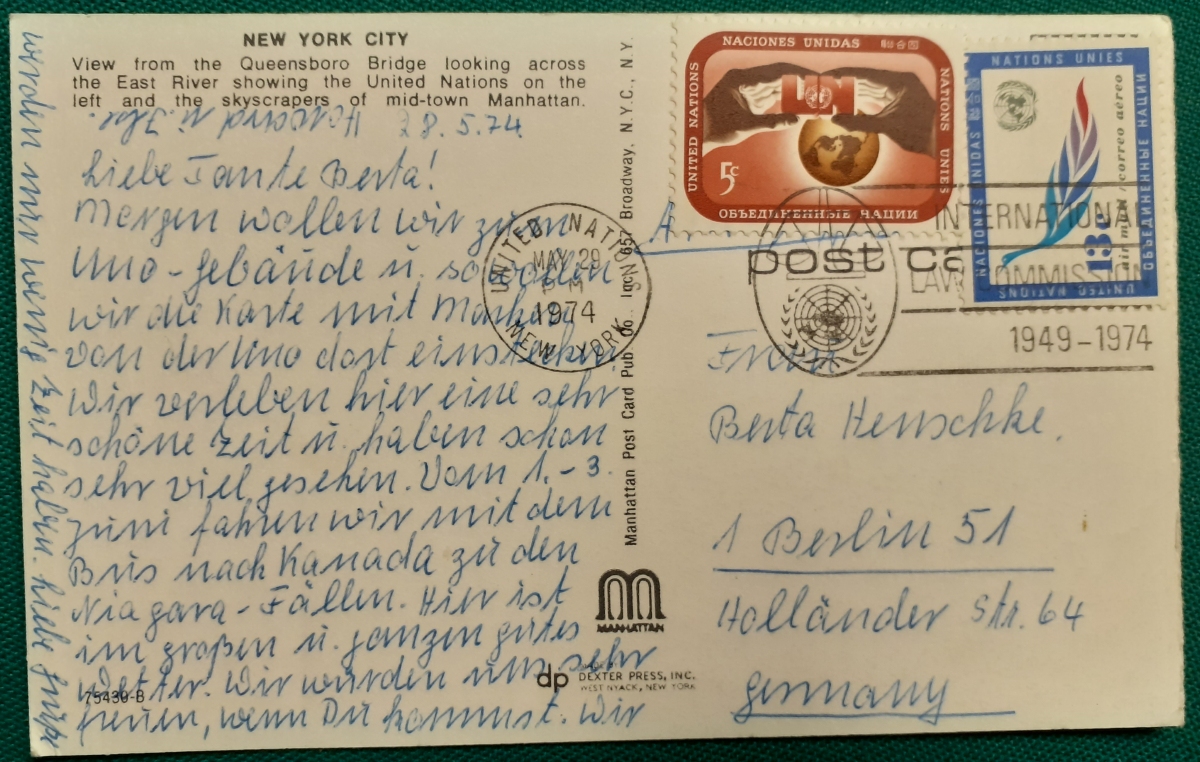 NEW YORK CITY
View from the Queensboro Bridge looking across
the East River showing the United Nations on the
left and the skyscrapers of mid-town Manhattan.
28.5.74
Liebe Tante Berta!
Morgen wollen wir zum
Uno-Gebäude u. so wollen
wir die Karte mit Marken
von der Uno dort einstecken.
Wir verleben hier eine sehr
schöne Zeit u. haben schon
sehr viel gesehen. Vom 1.-3.
Juni fahren wir mit dem
Bus nach Kanada zu den
Niagara-Fällen. Hier ist
im großen u. ganzen gutes
Wetter. Wir würden uns sehr
freuen, wenn Du kommst. Wir
werden nur wenig Zeit haben. Liebe Grüße
Roland u. Ilse.
75430-B
Manhattan Post Card Pub. Co., Inc., 657 Broadway, N.Y.C., N.Y.
MANHATTAN
dp
DEXTER PRESS, INC.
WEST NYACK, NEW YORK
NACIONES UNIDAS
UNITED NATIONS
NATIONS UNIES
ОБЪЕДИНЕННЫЕ НАЦИИ
5c
NATIONS UNIES
NACIONES UNIDAS
ОБЪЕДИНЕННЫЕ НАЦИИ
UNITED NATIONS
13c
air mail/correo aéreo
UNITED NATIONS
MAY 29
PM
1974
NEW YORK
INTERNATIONAL
LAW COMMISSION
1949-1974
post ca
Frau
Berta Henschke.
1 Berlin 51
Holländer Str. 64
Germany